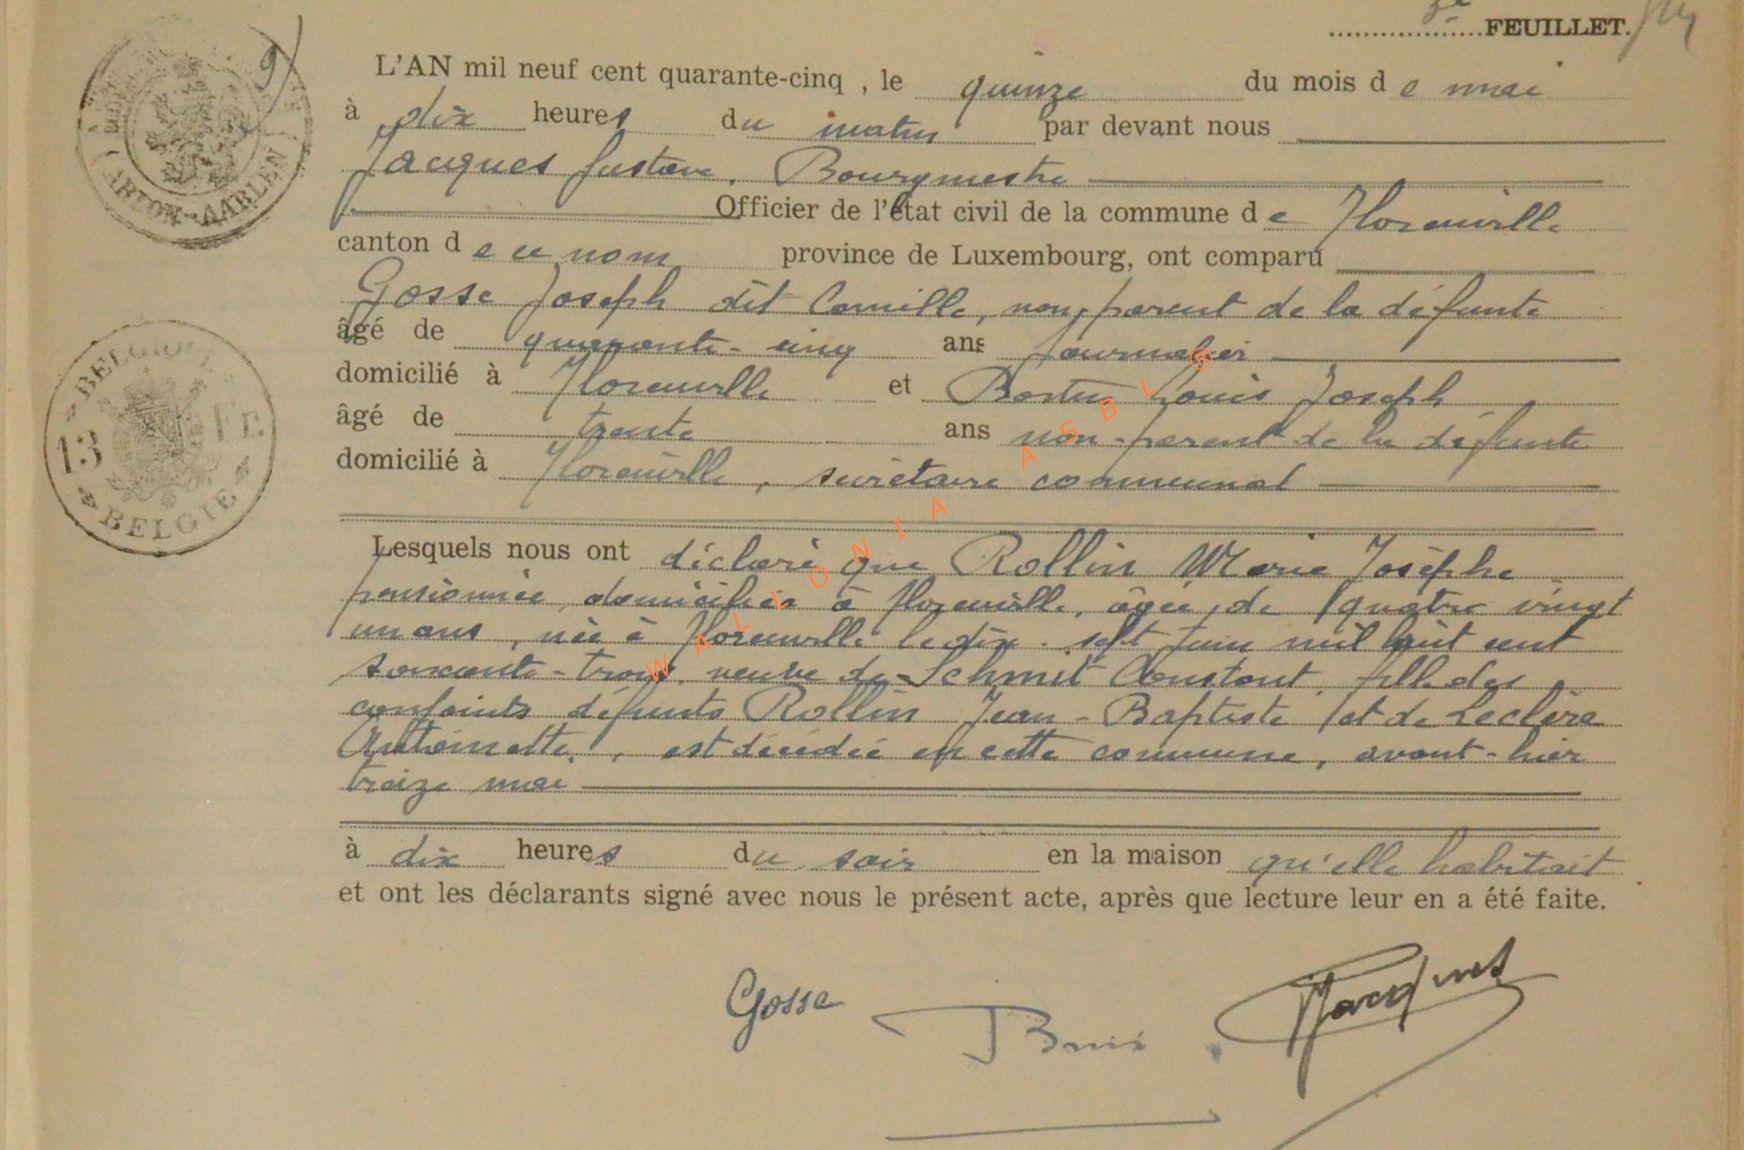 3e FEUILLET.
L'AN mil neuf cent quarante-cinq , le quinze du mois de mai
à dix heures du matin par devant nous
Jacques Gustave, Bourgmestre
Officier de l'état civil de la commune de Florenville
canton de ce nom province de Luxembourg, ont comparu
Gosse Joseph dit Camille, non parent de la défunte
âgé de quarante-cinq ans journalier
domicilié à Florenville et Louis Joseph
âgé de trente ans non-parent de la défunte
domicilié à Florenville, secrétaire communal
Lesquels nous ont déclaré que Rollin Marie Josèphe
pensionnée, domiciliée à Florenville, âgée de quatre vingt
un ans, née à Florenville le dix-sept juin mil huit cent
soixante-trois, veuve de Schmit Constant, fille des
conjoints défunts Rollin Jean-Baptiste et de Leclère
Antoinette, est décédée en cette commune, avant-hier
treize mai
à dix heures du soir en la maison qu'elle habitait
et ont les déclarants signé avec nous le présent acte, après que lecture leur en a été faite.
Gosse
Jacques
ARLON-AARLEN
BELGIQUE
13 Fr.
BELGIE
WALLONIA ASBL ©